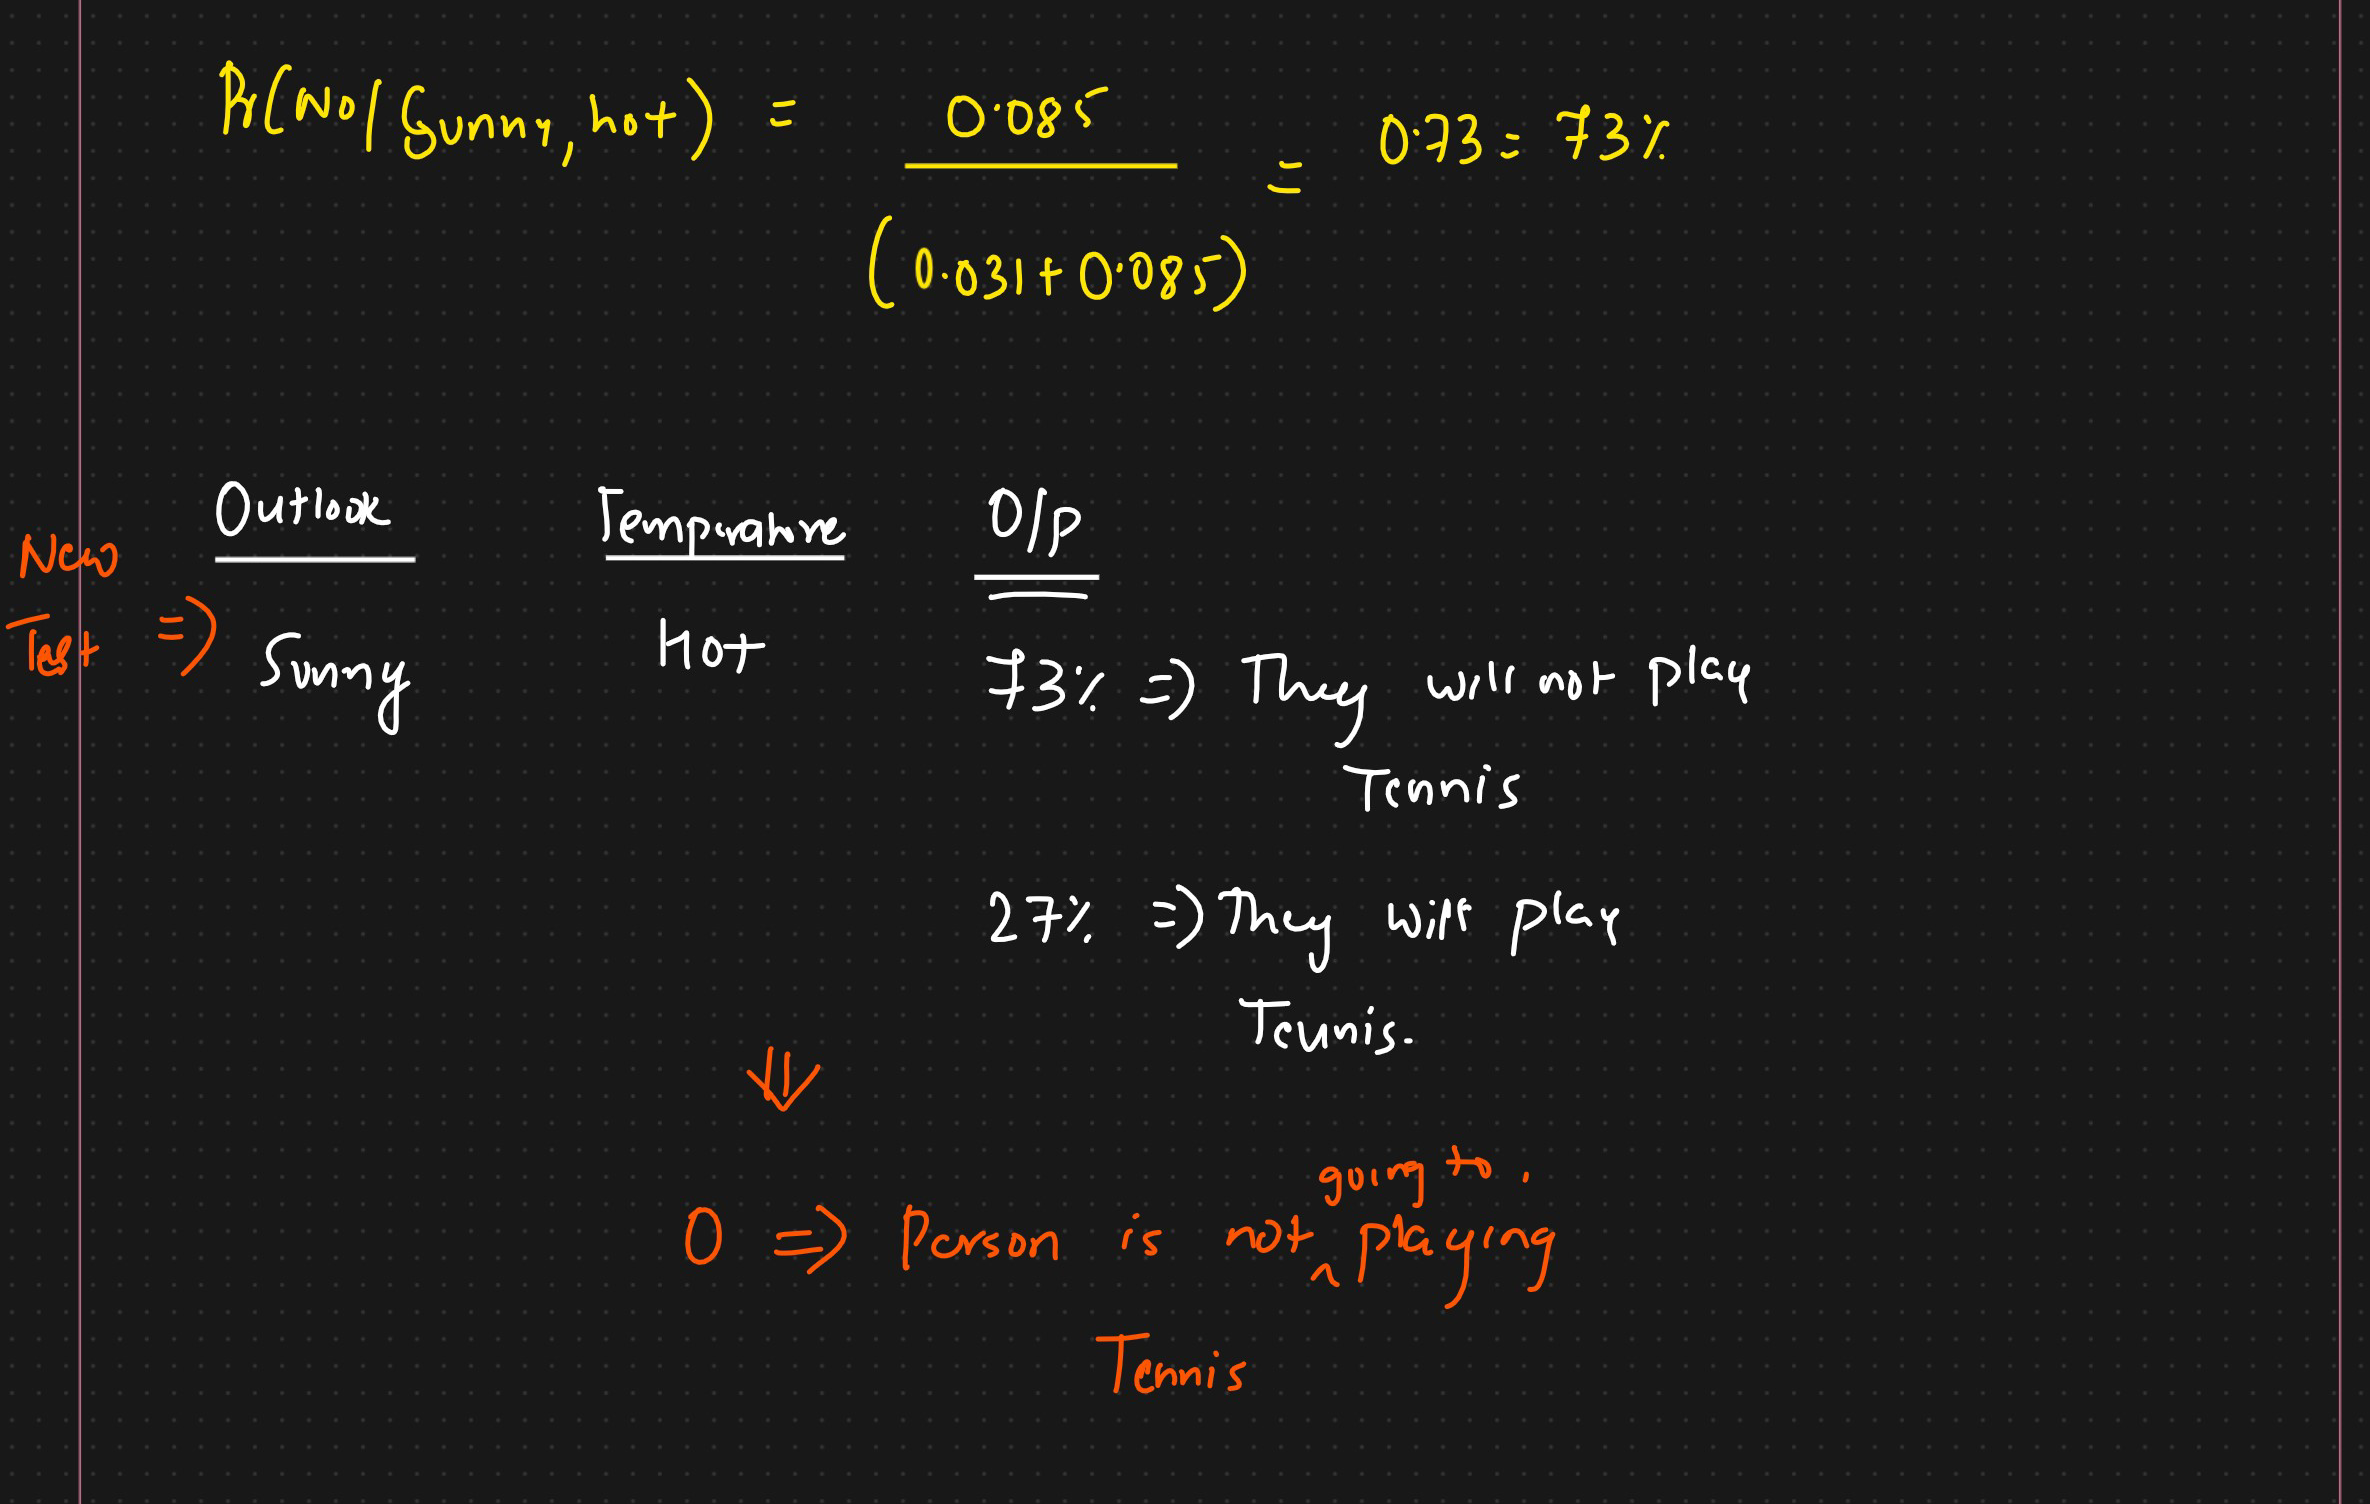 Pr(No/Sunny, hot) = 0.085 / (0.031 + 0.085) = 0.73 = 73%
Outlook Temperature O/p
New
Test => Sunny Hot 73% => They will not play
Tennis
27% => They will play
Tennis.
going to
0 => Person is not ^ playing
Tennis